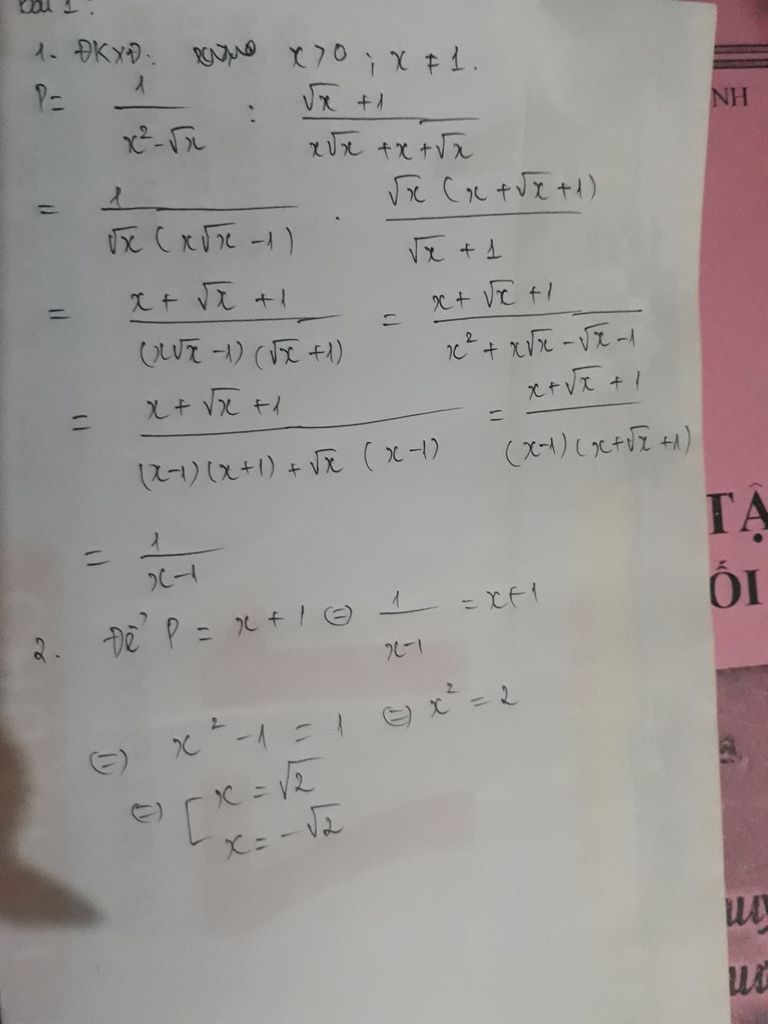 Bài 1:
1. ĐKXĐ: x > 0 ; x ≠ 1.
P = 1/(x² - √x) : (√x + 1)/(x√x + x + √x)
= 1/(√x (x√x - 1)) . (√x (x + √x + 1))/(√x + 1)
= (x + √x + 1)/((x√x - 1)(√x + 1)) = (x + √x + 1)/(x² + x√x - √x - 1)
= (x + √x + 1)/((x-1)(x+1) + √x (x-1)) = (x + √x + 1)/((x-1)(x + √x + 1))
= 1/(x-1)
2. Để P = x + 1 ⇔ 1/(x-1) = x+1
⇔ x² - 1 = 1 ⇔ x² = 2
⇔ [ x = √2
x = -√2
NH
TẬ
ỐI